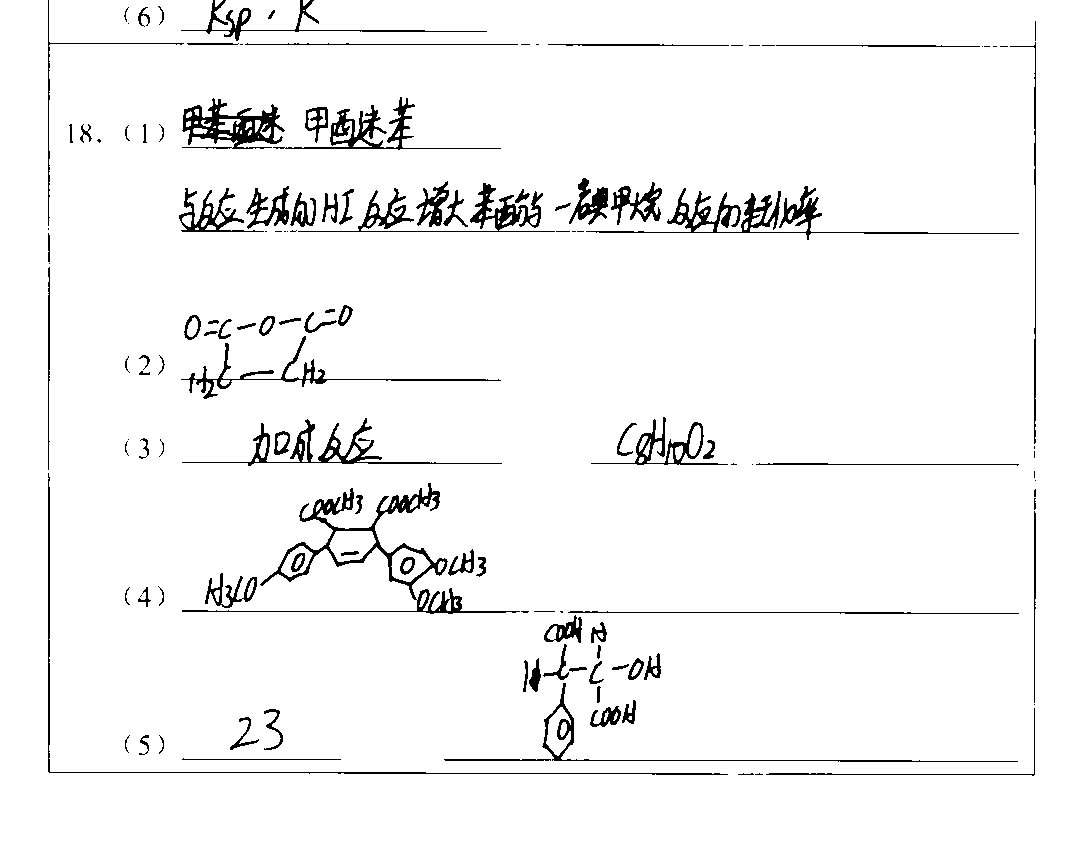 (6) Ksp, K
18. (1) 甲西迷苯
与反应生成的HI反应增大苯酚与一碘甲烷反应的转化率
O=C-O-C=O
(2) H2C-CH2
(3) 加成反应 C8H10O2
COOCH3 COOCH3
OCH3
(4) H3CO OCH3
COOH H
H-C-C-OH
COOH
(5) 23